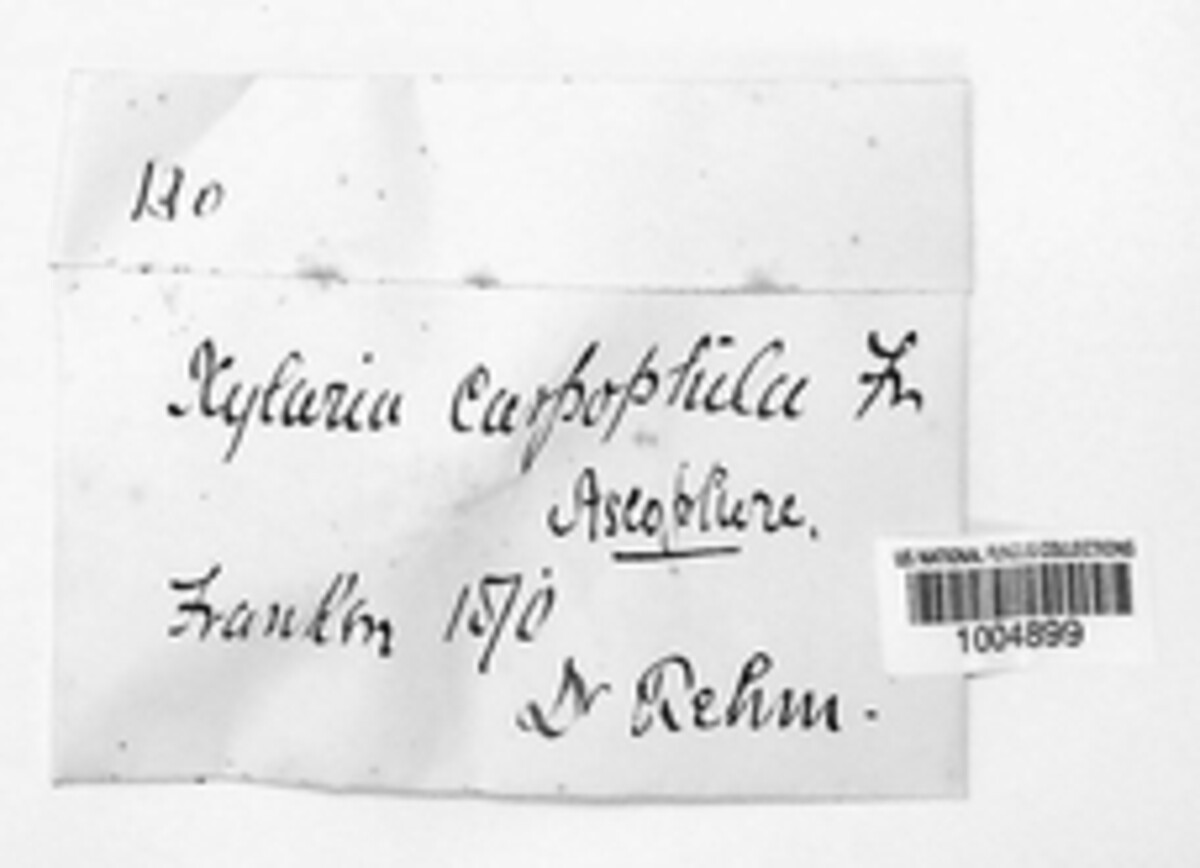 130
Xylaria carpophila Fr
Franken 1870
Dr Rehm.
US NATIONAL FUNGUS COLLECTIONS
1004899